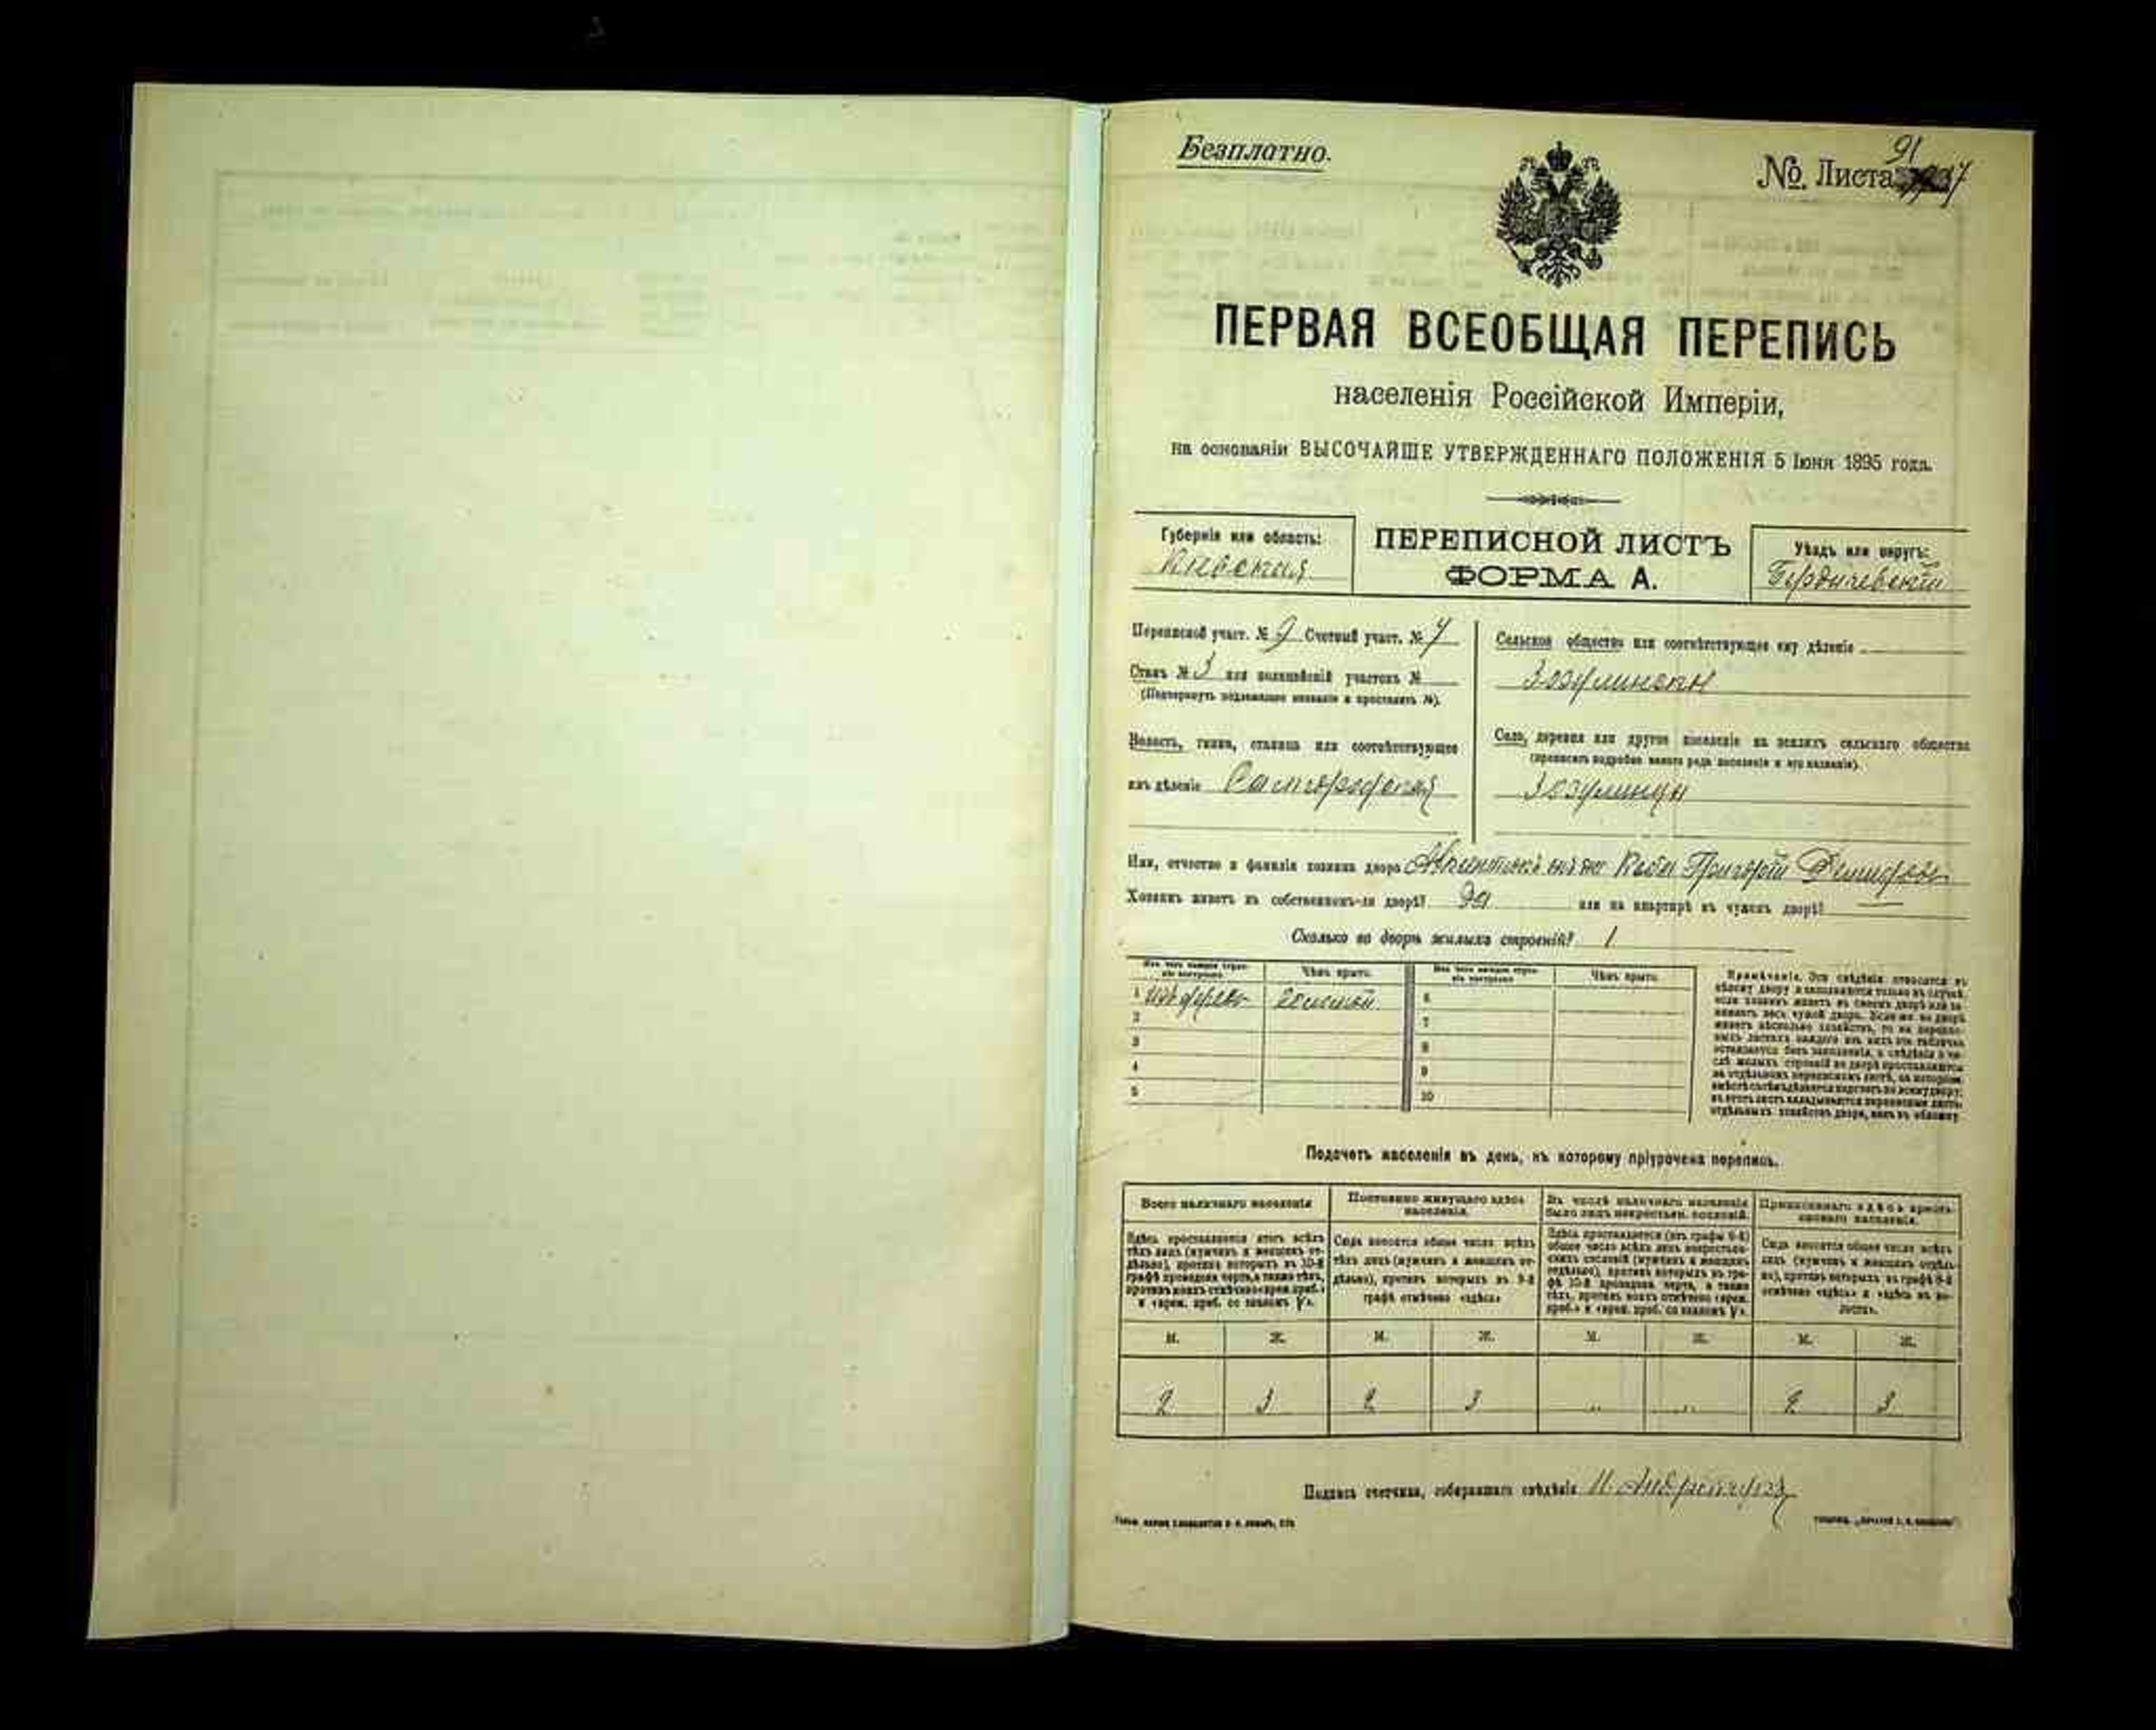 Безплатно.
№ Листа 91
ПЕРВАЯ ВСЕОБЩАЯ ПЕРЕПИСЬ
населенія Россійской Имперіи,
на основаніи ВЫСОЧАЙШЕ УТВЕРЖДЕННАГО ПОЛОЖЕНІЯ 5 Іюня 1895 года.
Губернія или область:
Кіевская
ПЕРЕПИСНОЙ ЛИСТЪ
ФОРМА А.
Уѣздъ или округъ:
Бердичевскій
Переписной участ. № 9 Счетный участ. № 4
Станъ № 3 или полицейскій участокъ №
(Подчеркнуть подлежащее названіе и проставить №).
Волость, гмина, станица или соотвѣтствующее
имъ дѣленіе Самгородская
Сельское общество или соотвѣтствующее ему дѣленіе
Село, деревня или другое поселеніе на земляхъ сельскаго общества
(прописать подробно какого рода поселеніе и его названіе).
Имя, отчество и фамилія хозяина двора Григорій
Хозяинъ живетъ въ собственномъ-ли дворѣ? да или на квартирѣ въ чужомъ дворѣ? —
Сколько во дворѣ жилыхъ строеній? 1
Изъ чего каждое строеніе построено. Чѣмъ крыто. Изъ чего каждое строеніе построено. Чѣмъ крыто.
1 соломой 6
2 7
3 8
4 9
5 10
Примѣчаніе. Эти свѣдѣнія относятся къ
цѣлому двору и заполняются только въ случаѣ,
если хозяинъ живетъ въ своемъ дворѣ или занимаетъ
весь чужой дворъ. Если же во дворѣ
живетъ нѣсколько хозяйствъ, то на переписныхъ
листахъ каждаго изъ нихъ эта табличка
оставляется безъ заполненія, а свѣдѣнія о числѣ
жилыхъ строеній во дворѣ проставляются
на отдѣльномъ переписномъ листѣ, на которомъ
отдѣльныхъ хозяйствъ двора, какъ въ обложку.
Подсчетъ населенія въ день, къ которому пріурочена перепись.
Всего наличнаго населенія
Здѣсь проставляется итогъ всѣхъ
тѣхъ лицъ (мужчинъ и женщинъ отдѣльно),
противъ которыхъ въ 10-й
графѣ проведена черта, а также тѣхъ,
противъ коихъ отмѣчено «врем. преб.»
и «врем. преб. со знакомъ V».
Постоянно живущаго здѣсь
населенія.
Сюда вносится общее число всѣхъ
тѣхъ лицъ (мужчинъ и женщинъ отдѣльно),
противъ которыхъ въ 9-й
графѣ отмѣчено «здѣсь»
Въ числѣ наличнаго населенія
было лицъ некрестьян. сословій.
Здѣсь проставляется (изъ графы 6-й)
общее число всѣхъ лицъ некрестьянскихъ
сословій (мужчинъ и женщинъ
отдѣльно), противъ которыхъ въ графѣ
10-й проведена черта, а также
тѣхъ, противъ коихъ отмѣчено «врем.
преб.» и «врем. преб. со знакомъ V».
Приписаннаго здѣсь крестьянскаго
населенія.
Сюда вносится общее число всѣхъ
лицъ (мужчинъ и женщинъ отдѣльно),
противъ которыхъ въ графѣ 8-й
отмѣчено «здѣсь» и «здѣсь въ волости».
М. Ж. М. Ж. М. Ж. М. Ж.
2 3 2 3 „ „ 2 3
Подпись счетчика, собиравшаго свѣдѣнія